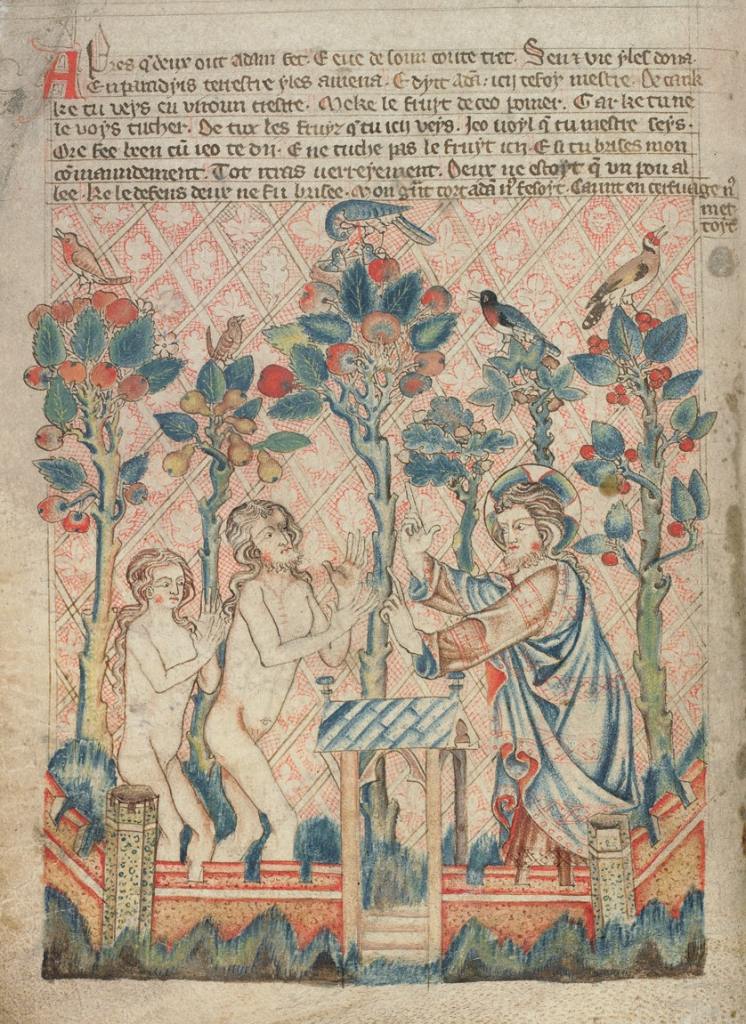 Apres q deux out adam fet. E eue de soun couste tret. Seu t vie yles dona.
En paradyis terrestre yles amena. E dyt ada: icy te soy mestre. De tank
ke tu veys en viroun crestre. Meke le fruyt de ceo pomer. Gar ke tu ne
le voys tucher. De tuz les fruyz q tu icy veys. Jeo voyl q tu mestre seys.
Ore fee ben cū ieo te di. E ne tuche pas le fruyt icy. E si tu brises mon
cōmaundement. Tot murras verreyement. Deux ne estoyt q̄ un pou al
lee. Ke le defens deux ne fu brisee. Mon g̃nt tort adā nᵒ fesoyt. Caunt en ceruage nᵒ
met
toyt